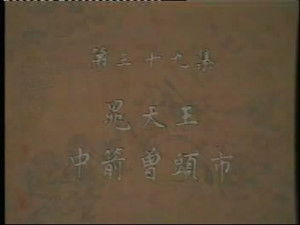 第三十九集
晁天王
中箭曾頭市